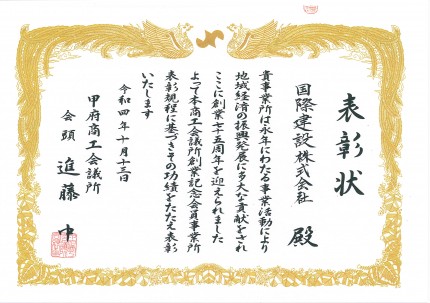 表彰状
国際建設株式会社 殿
貴事業所は永年にわたる事業活動により
地域経済の振興発展に多大な貢献をされ
ここに創業七十五周年を迎えられました
よって本商工会議所創業記念会員事業所
表彰規程に基づきその功績をたたえ表彰
いたします
令和四年十月十三日
甲府商工会議所
会頭 進藤 中